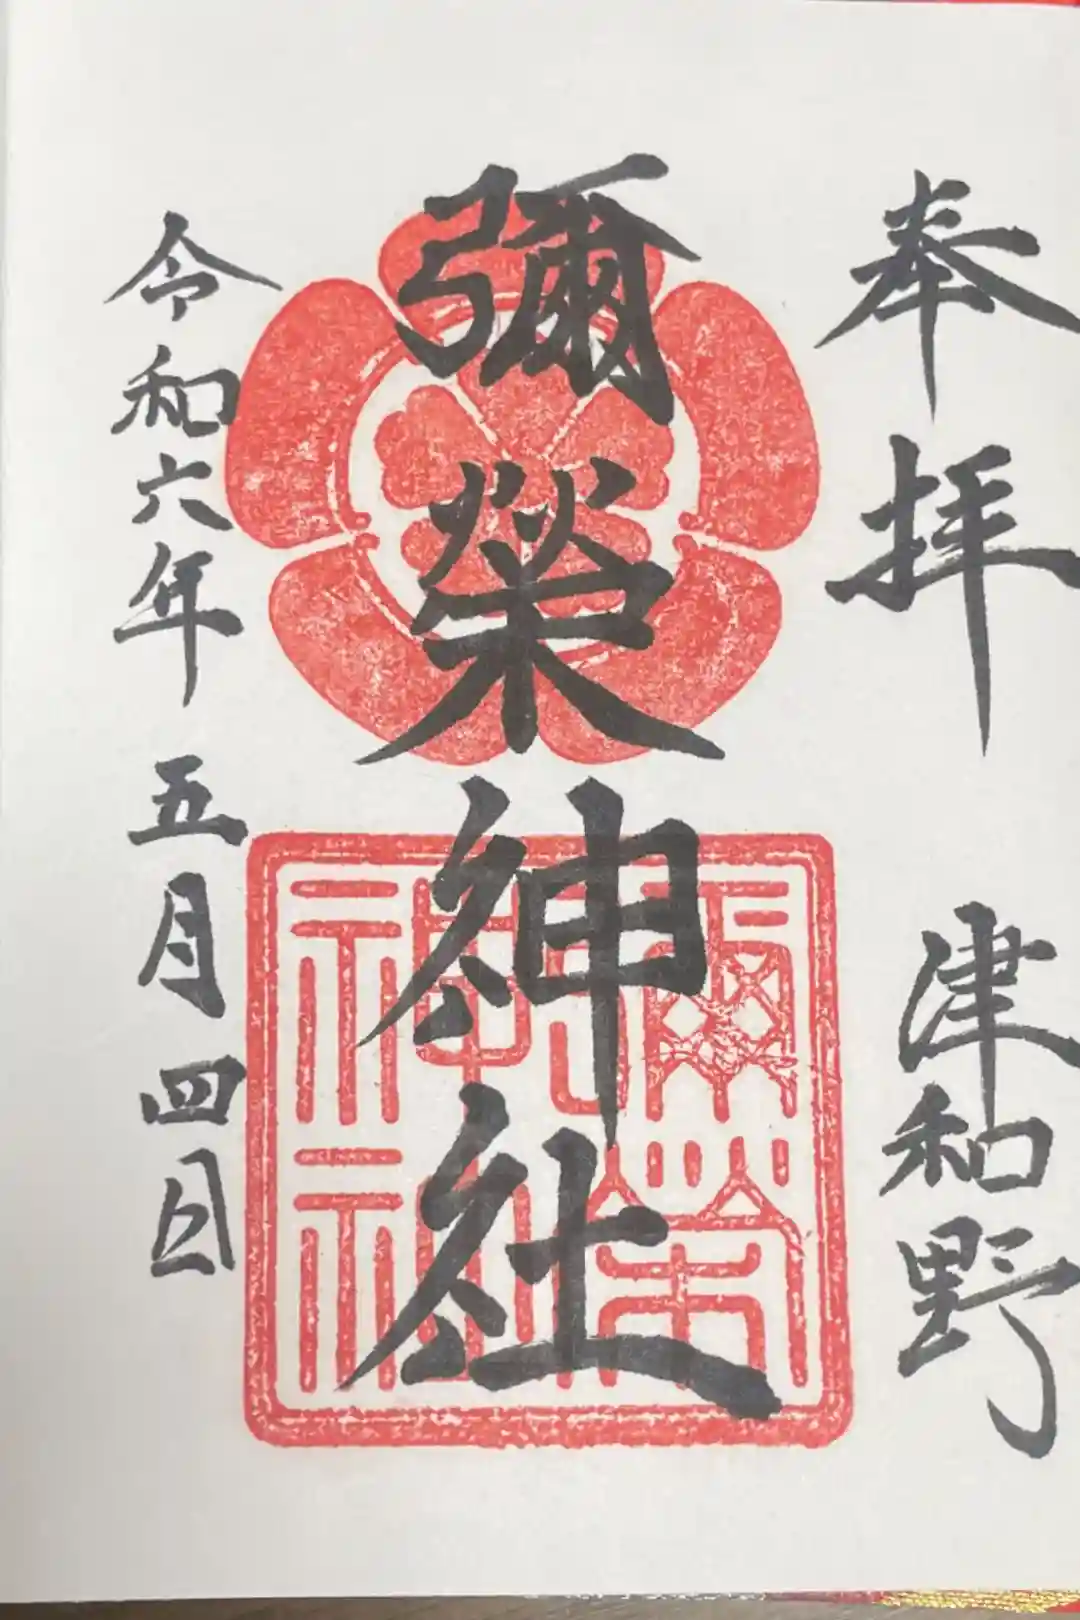 奉拝 津和野
彌榮神社
彌榮神社
令和六年五月四日